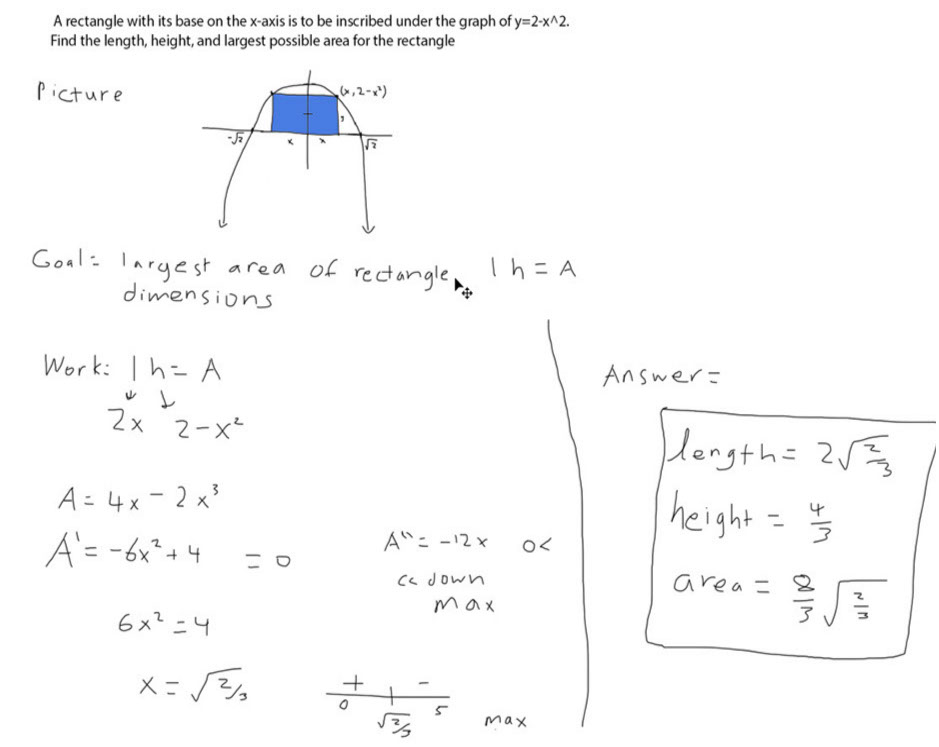 A rectangle with its base on the x-axis is to be inscribed under the graph of y=2-x^2.
Find the length, height, and largest possible area for the rectangle
Picture
(x, 2-x²)
-√2 x x √2
Goal: largest area of rectangle, l h = A
dimensions
Work: l h = A
2x 2-x²
A = 4x - 2x³
A' = -6x² + 4 = 0
6x² = 4
x = √2/3
A'' = -12x 0<
cc down
max
+ -
0 √2/3 5 max
Answer =
length = 2√2/3
height = 4/3
area = 8/3 √2/3